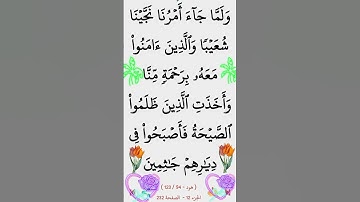 وَلَمَّا جَآءَ أَمۡرُنَا نَجَّيۡنَا
شُعَيۡبٗا وَٱلَّذِينَ ءَامَنُواْ
مَعَهُۥ بِرَحۡمَةٖ مِّنَّا
وَأَخَذَتِ ٱلَّذِينَ ظَلَمُواْ
ٱلصَّيۡحَةُ فَأَصۡبَحُواْ فِي
دِيَٰرِهِمۡ جَٰثِمِينَ
( هود - 94 / 123 )
الجزء 12 - الصفحة 232